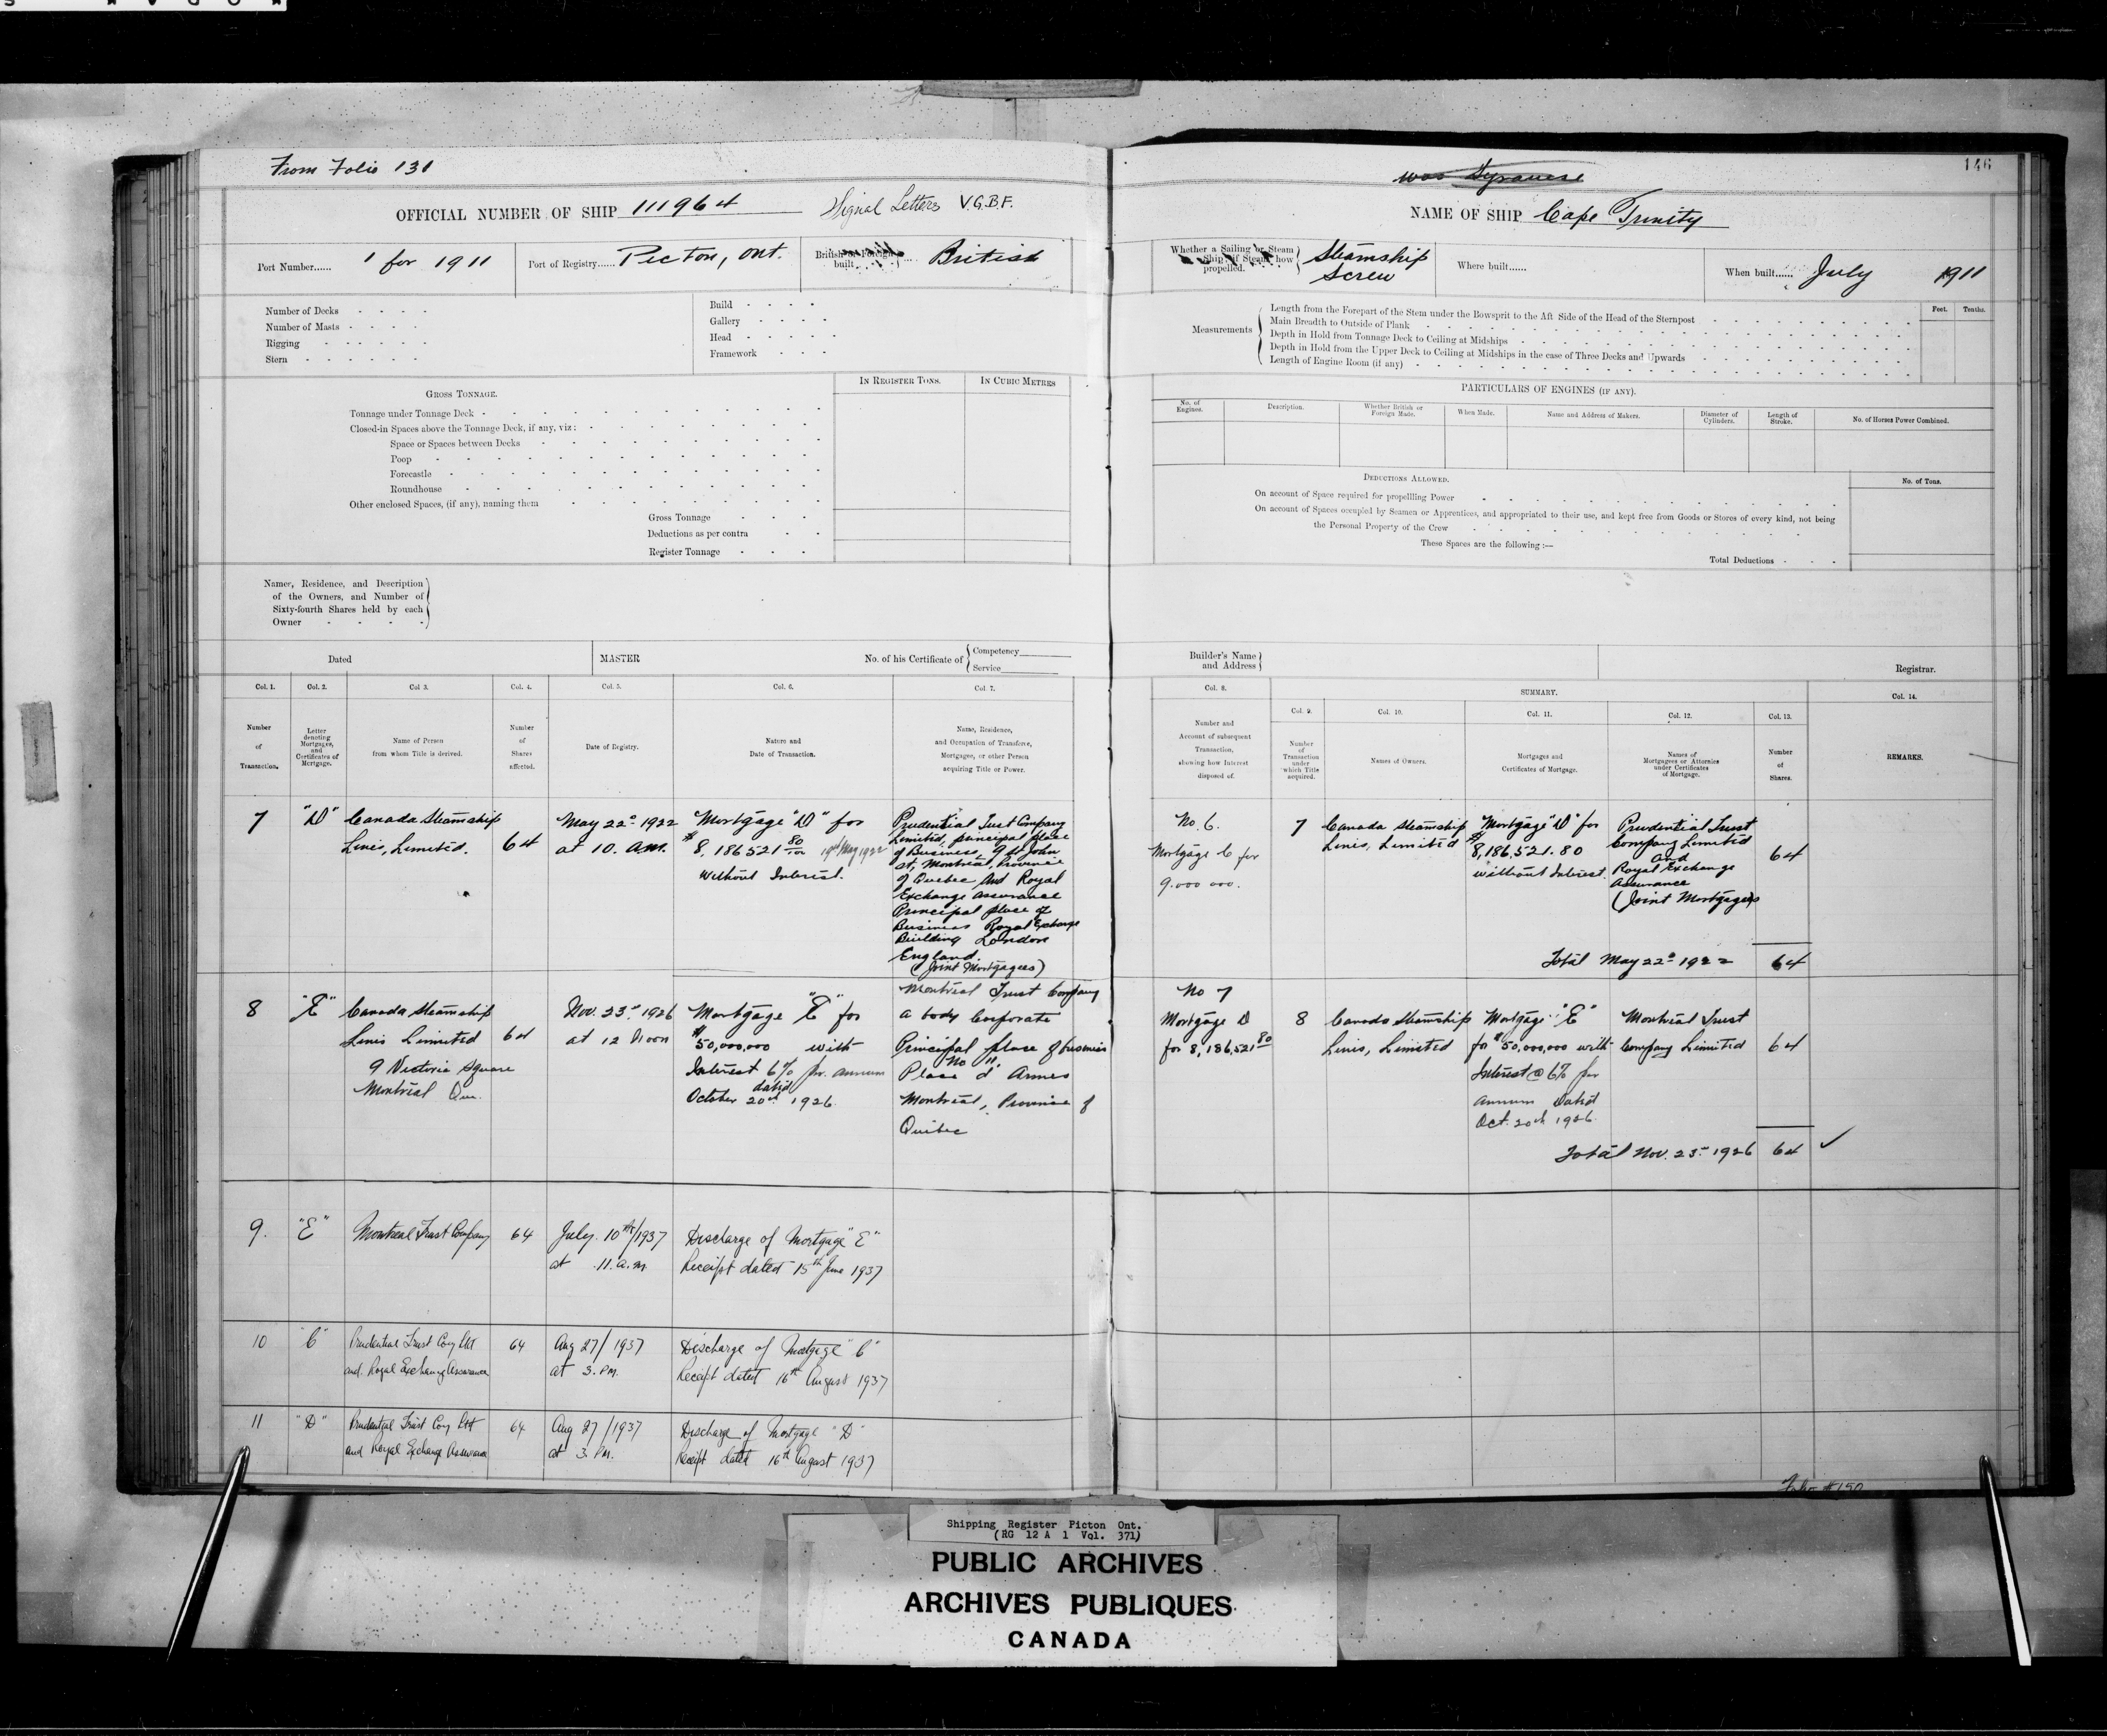 From Folio 131
OFFICIAL NUMBER OF SHIP 111964
Signal Letters V.G.B.F.
Port Number...... 1 for 1911
Port of Registry...... Picton, Ont.
British or Foreign built British
Number of Decks
Number of Masts
Rigging
Stern
Build
Gallery
Head
Framework
GROSS TONNAGE.
IN REGISTER TONS.
IN CUBIC METRES
Tonnage under Tonnage Deck
Closed-in Spaces above the Tonnage Deck, if any, viz:
Space or Spaces between Decks
Poop
Forecastle
Roundhouse
Other enclosed Spaces, (if any), naming them
Gross Tonnage
Deductions as per contra
Register Tonnage
Names, Residence, and Description
of the Owners, and Number of
Sixty-fourth Shares held by each
Owner
Dated
MASTER
No. of his Certificate of
Competency
Service
Col. 1.
Number
of
Transaction.
Col. 2.
Letter
denoting
Mortgages,
and
Certificates of
Mortgage.
Col 3.
Name of Person
from whom Title is derived.
Col. 4.
Number
of
Shares
affected.
Col. 5.
Date of Registry.
Col. 6.
Nature and
Date of Transaction.
Col. 7.
Name, Residence,
and Occupation of Transferee,
Mortgagee, or other Person
acquiring Title or Power.
7
"D"
Canada Steamship
Lines, Limited.
64
May 22d 1922
at 10. a.m.
Mortgage "D" for
$8,186521 80/100 19th May 1922
without Interest.
Prudential Trust Company
Limited, principal place
of Business, 9 St John
St, Montreal Province
of Quebec and Royal
Exchange Assurance
Principal place of
Business Royal Exchange
Building London
England
(Joint Mortgagees)
8
"E"
Canada Steamship
Lines Limited
9 Victoria Square
Montreal Que.
64
Nov. 23rd 1926
at 12 Noon
Mortgage "E" for
$50,000,000 with
Interest 6% per annum
dated
October 20th 1926.
Montreal Trust Company
a body Corporate
Principal place of business
No 11
Place d' Armes
Montreal, Province of
Quebec
9.
"E"
Montreal Trust Company
64
July 10th/1937
at 11. a.m.
Discharge of Mortgage "E"
Receipt dated 15th June 1937
10
"C"
Prudential Trust Coy Ltd
and Royal Exchange Assurance
64
Aug 27/1937
at 3. PM.
Discharge of Mortgage "C"
Receipt dated 16th August 1937
11
"D"
Prudential Trust Coy Ltd
and Royal Exchange Assurance
64
Aug 27/1937
at 3. PM.
Discharge of Mortgage "D"
Receipt dated 16th August 1937
146
NAME OF SHIP Cape Trinity
Whether a Sailing or Steam
Ship; if Steam, how
propelled.
Steamship
Screw
Where built......
When built...... July 1911
Measurements
Length from the Forepart of the Stem under the Bowsprit to the Aft Side of the Head of the Sternpost
Main Breadth to Outside of Plank
Depth in Hold from Tonnage Deck to Ceiling at Midships
Depth in Hold from the Upper Deck to Ceiling at Midships in the case of Three Decks and Upwards
Length of Engine Room (if any)
Feet.
Tenths.
PARTICULARS OF ENGINES (IF ANY).
No. of
Engines.
Description.
Whether British or
Foreign Made.
When Made.
Name and Address of Makers.
Diameter of
Cylinders.
Length of
Stroke.
No. of Horses Power Combined.
DEDUCTIONS ALLOWED.
No. of Tons.
On account of Space required for propellling Power
On account of Spaces occupied by Seamen or Apprentices, and appropriated to their use, and kept free from Goods or Stores of every kind, not being
the Personal Property of the Crew
These Spaces are the following :—
Total Deductions
Builder's Name
and Address
Registrar.
Col. 8.
Number and
Account of subsequent
Transaction,
showing how Interest
disposed of.
SUMMARY.
Col. 9.
Number
of
Transaction
under
which Title
acquired.
Col. 10.
Names of Owners.
Col. 11.
Mortgages and
Certificates of Mortgage.
Col. 12.
Names of
Mortgagees or Attornies
under Certificates
of Mortgage.
Col. 13.
Number
of
Shares.
Col. 14.
REMARKS.
No. 6.
Mortgage C for
9.000 000.
7
Canada Steamship
Lines, Limited
Mortgage "D" for
$8,186,521.80
without Interest.
Prudential Trust
Company Limited
and
Royal Exchange
Assurance
(Joint Mortgagees)
64
Total May 22d 1922 64
No 7
Mortgage D
for 8,186,521 80
8
Canada Steamship
Lines, Limited
Mortgage "E"
for $50,000,000 with
Interest @ 6% per
annum Dated
Oct. 20th 1926
Montreal Trust
Company Limited
64
Total Nov. 23rd 1926 64
Folio #150
Shipping Register Picton Ont.
(RG 12 A 1 Vol. 371)
PUBLIC ARCHIVES
ARCHIVES PUBLIQUES
CANADA